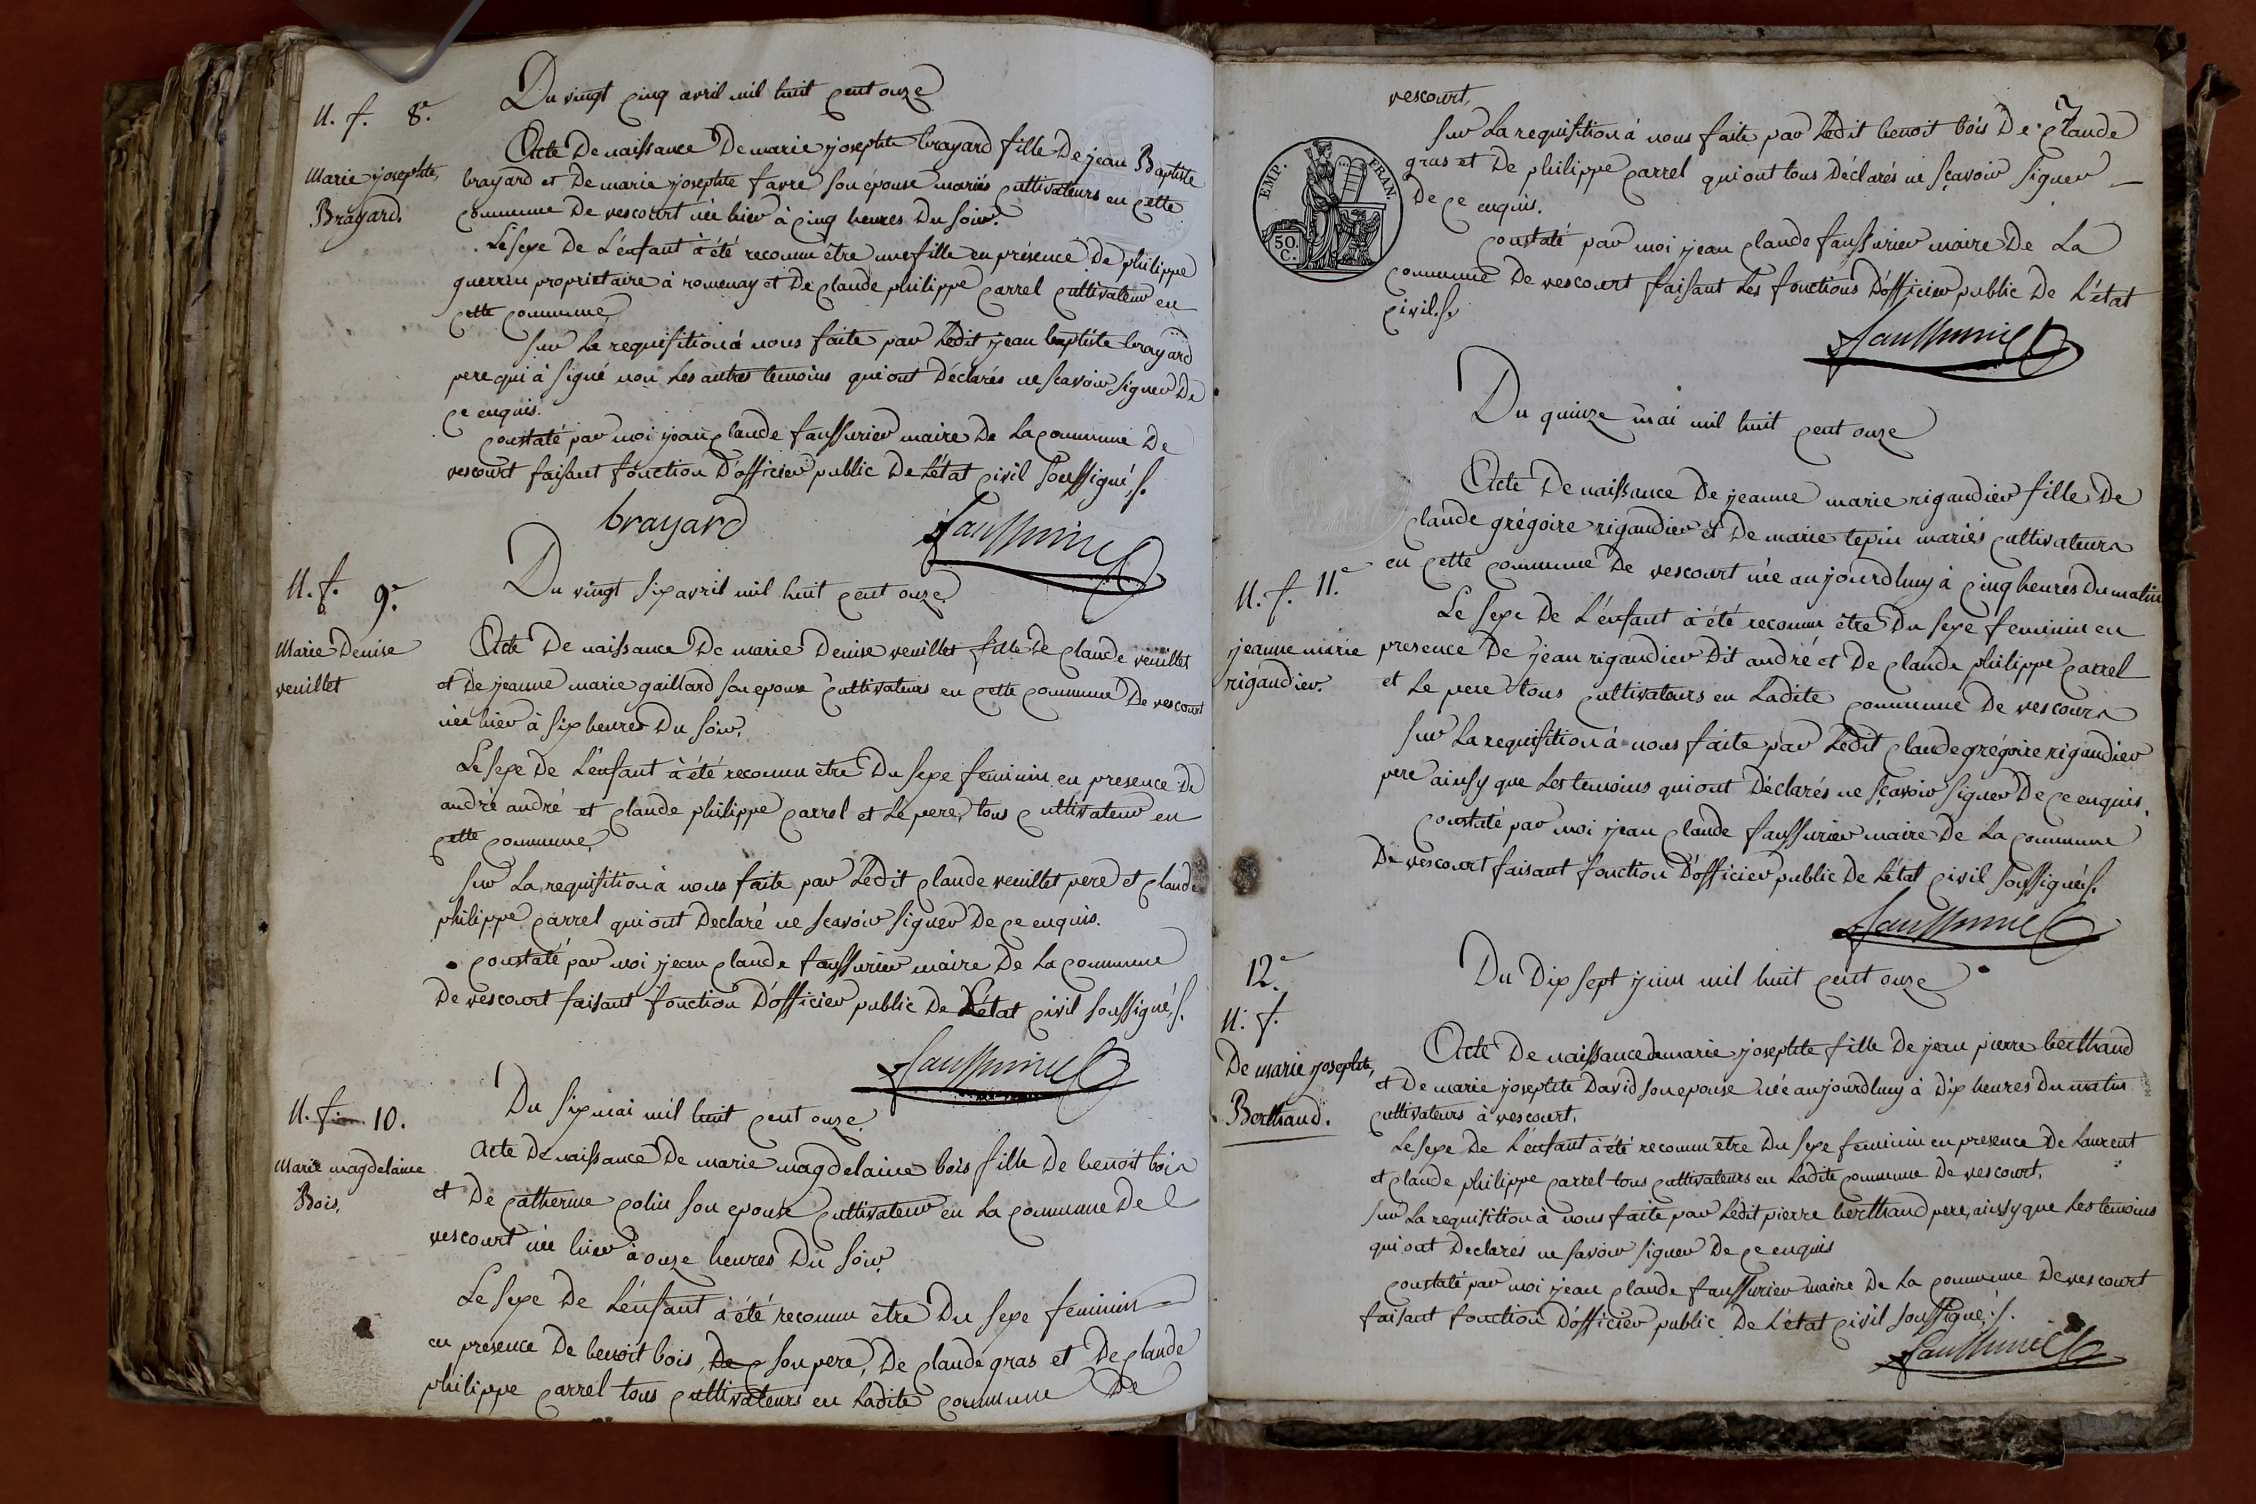 Du vingt cinq avril mil huit cent onze
N. f. 8.e
Marie josephte,
Brayard.
Acte De naissance De marie josephte brayard fille De jean Baptiste
brayard et De marie josephte favre son épouse mariés cultivateurs en cette
commune De vescourt née hier à cinq heures Du soir.
Le sexe De L'énfant à été reconnu être une fille en présence De philippe
guerrin propriétaire à romenay et De claude philippe carrel cultivateur en
cette commune,
sur La requisition à nous faite par Ledit jean baptiste brayard
pere qui à signé non Les autres temoins qui ont Déclarés ne scavoir signer De
ce enquis.
constaté par moi jean claude faussurier maire De La commune De
vescourt faisant fonction D'officier public De L'état civil soussigné,/.
brayard
N. f. 9.e
Du vingt six avril mil huit cent onze
Marie Denise
veuillet
Acte De naissance De marie Denise veuillet fille De claude veuillet
et De jeanne marie gaillard son epouse cultivateurs en cette commune De vescourt
née hier à six heures Du soir,
Le sexe De L'énfant à été reconnu être Du sexe feminin en presence De
andré andré et claude philippe carrel et Le pere, tous cultivateur en
cette commune,
sur La requisition à nous faite par Ledit claude veuillet pere et claude
philippe carrel qui ont Declaré ne scavoir signer De ce enquis.
constaté par moi jean claude faussurier maire De La commune
De vescourt faisant fonction D'officier public De L'état civil soussigné,/.
N. f. 10.
Du six mai mil huit cent onze
Marie magdelaine
Bois,
Acte De naissance De marie magdelaine bois fille De benoit bois
et De catherine colin son epouse cultivateur en La commune De
vescourt née hier à onze heures Du soir,
Le sexe De L'énfant à été reconnu être Du sexe feminin
en presence De benoit bois, De c son pere, De claude gras et De claude
philippe carrel tous cultivateurs en Ladite commune De
7
vescourt,
sur La requisition à nous faite par Ledit benoit bois De claude
gras et De philippe carrel qui ont tous Déclarés ne scavoir signer
De ce enquis.
EMP. FRAN.
50.
C.
constaté par moi jean claude faussurier maire De La
commune De vescourt faisant Les fonctions D'officier public De L'état
civil./.
Du quinze mai mil huit cent onze
N. f. 11.e
jeanne marie
rigaudier.
Acte De naissance De jeanne marie rigaudier fille De
claude grégoire rigaudier et De marie tepin mariés cultivateurs
en cette commune De vescourt née aujourdhuy à cinq heures Du matin
Le sexe De L'énfant à été reconnu être Du sexe feminin en
presence De jean rigaudier Dit andré et De claude philippe carrel
et Le pere tous cultivateurs en Ladite commune De vescours
sur La requisition à nous faite par Ledit claude grégoire rigaudier
pere ainsy que Les temoins qui ont Déclarés ne scavoir signer De ce enquis.
constaté par moi jean claude faussurier maire De La commune
De vescourt faisant fonction D'officier public De L'état civil soussigné/.
12.e
N. f.
De marie josephte,
Berthaud.
Du Dix sept juin mil huit cent onze
Acte De naissance de marie josephte fille De jean pierre berthaud
et De marie josephte David son epouse née aujourdhuy à Dix heures Du matin
cultivateurs à vescourt,
Le sexe De L'énfant à été reconnu être Du sexe feminin en presence De Laurent
et claude philippe carrel tous cultivateurs en Ladite commune De vescourt,
sur La requisition à nous faite par Ledit pierre berthaud pere, ainsy que Les temoins
qui ont Declarés ne savoir signer De ce enquis
constaté par moi jean claude faussurier maire De La commune De vescourt
faisant fonction D'officier public De L'état civil soussigné./.